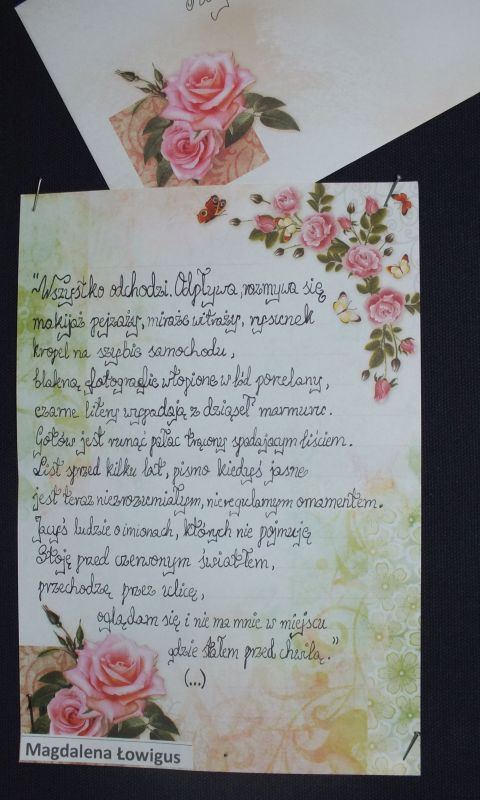 "Wszystko odchodzi. Odpływa, rozmywa się
makijaż pejzaży, miraże witraży, rysunek
kropel na szybie samochodu,
blakną fotografie wtopione w łód porcelany,
czarne litery wypadają z dziąseł marmuru.
Gotów jest runąć pałac trącony spadającym liściem.
List sprzed kilku lat, pismo kiedyś jasne
jest teraz niezrozumiałym, nieregularnym ornamentem.
Jacyś ludzie o imionach, których nie pojmuję
Stoję przed czerwonym światłem,
przechodzę przez ulicę,
oglądam się i nie ma mnie w miejscu
gdzie stałem przed chwilą."
(...)
Magdalena Łowigus